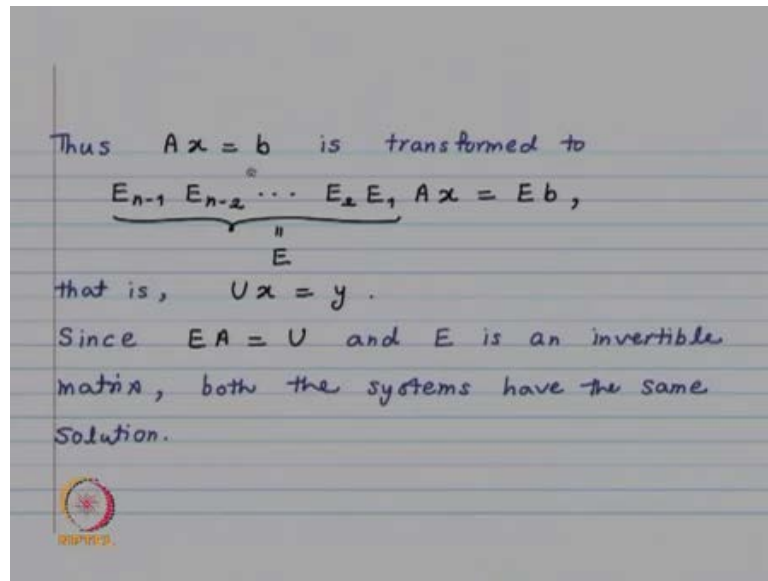 Thus A x = b is transformed to
E_{n-1} E_{n-2} ... E_2 E_1 A x = E b ,
"
E
that is , U x = y .
Since E A = U and E is an invertible
matrix, both the systems have the same
solution.